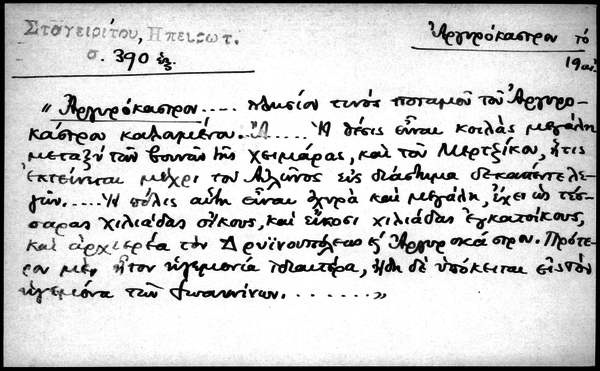 Σταγειρίτου, Ηπειρωτ.
σ. 390 ἑξ.
Ἀργυρόκαστρον τό
19 αἰ.
"Ἀργυρόκαστρον.... πλησίον τινός ποταμοῦ τοῦ Ἀργυρο-
κάστρου καλουμένου. ..... Ἡ θέσις εἶναι κοιλάς μεγάλη
μεταξύ τῶν βουνῶν τῆς Χειμάρας, καὶ τοῦ Μερτζίκου, ἥτις
ἐκτείνεται μέχρι τοῦ Αὐλῶνος εἰς διάστημα δεκαπέντε λε-
γῶν..... Ἡ πόλις αὕτη εἶναι ὀχυρά καὶ μεγάλη, ἔχει ὡς τέσ-
σαρας χιλιάδας οἴκους, καὶ εἴκοσι χιλιάδας ἐγκατοίκους,
καὶ ἀρχιερέα τόν Δρυϊνουπόλεως καὶ Ἀργυροκάστρου. Πρότε-
ρον μέν ἦτον ἡγεμονία ἰδιαιτέρα, ἤδη δέ ὑπόκειται εἰς τόν
ἡγεμόνα τῶν Ἰωαννίνων. ......."